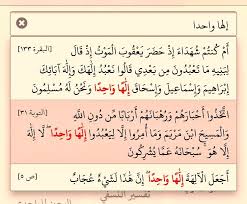 إلها واحدا
أَمْ كُنتُمْ شُهَدَاءَ إِذْ حَضَرَ يَعْقُوبَ الْمَوْتُ إِذْ قَالَ [البقرة ١٣٣]
لِبَنِيهِ مَا تَعْبُدُونَ مِن بَعْدِي قَالُوا نَعْبُدُ إِلَٰهَكَ وَإِلَٰهَ آبَائِكَ
إِبْرَاهِيمَ وَإِسْمَاعِيلَ وَإِسْحَاقَ إِلَٰهًا وَاحِدًا وَنَحْنُ لَهُ مُسْلِمُونَ
اتَّخَذُوا أَحْبَارَهُمْ وَرُهْبَانَهُمْ أَرْبَابًا مِّن دُونِ اللَّهِ [التوبة ٣١]
وَالْمَسِيحَ ابْنَ مَرْيَمَ وَمَا أُمِرُوا إِلَّا لِيَعْبُدُوا إِلَٰهًا وَاحِدًا ۖ لَّا إِلَٰهَ
إِلَّا هُوَ ۚ سُبْحَانَهُ عَمَّا يُشْرِكُونَ
أَجَعَلَ الْآلِهَةَ إِلَٰهًا وَاحِدًا ۖ إِنَّ هَٰذَا لَشَيْءٌ عُجَابٌ [ص ٥]
تفسير النسفي